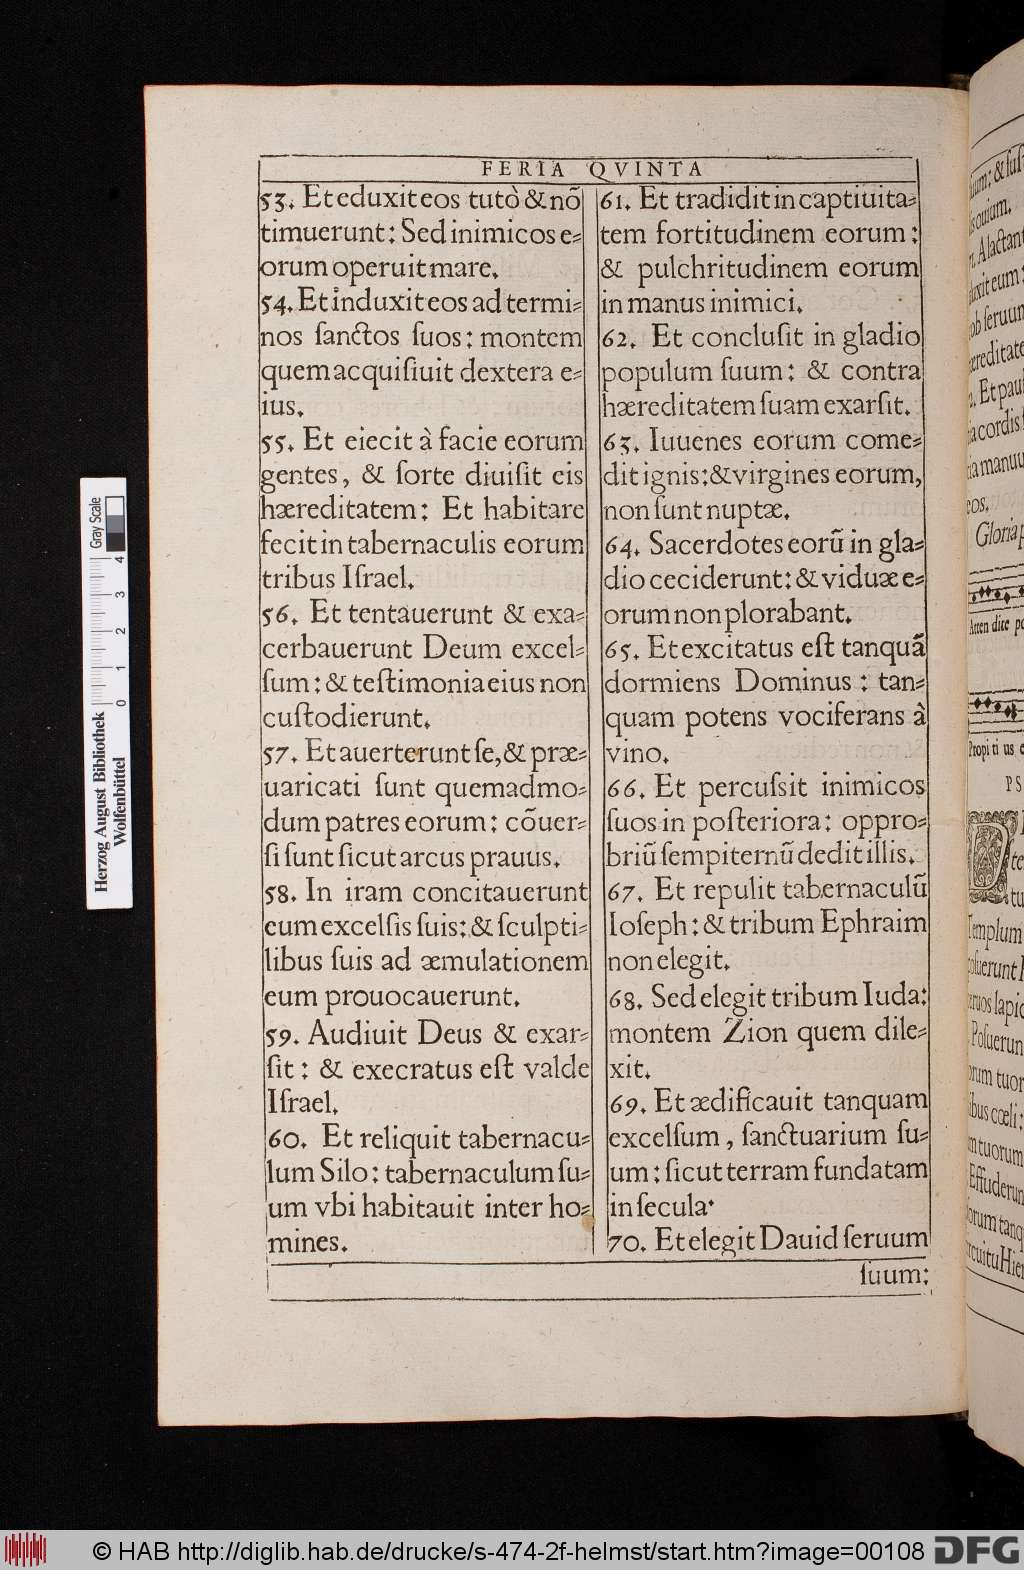 FERIA QVINTA
53. Et eduxit eos tutò & nõ
timuerunt: Sed inimicos e-
orum operuit mare.
54. Et induxit eos ad termi-
nos ſanctos ſuos: montem
quem acquiſiuit dextera e-
ius.
55. Et eiecit à facie eorum
gentes, & ſorte diuiſit eis
hæreditatem: Et habitare
fecit in tabernaculis eorum
tribus Iſrael.
56. Et tentauerunt & exa-
cerbauerunt Deum excel-
ſum: & teſtimonia eius non
cuſtodierunt.
57. Et auerterunt ſe, & præ-
uaricati ſunt quemadmo-
dum patres eorum: cõuer-
ſi ſunt ſicut arcus prauus.
58. In iram concitauerunt
eum excelſis ſuis: & ſculpti-
libus ſuis ad æmulationem
eum prouocauerunt.
59. Audiuit Deus & exar-
ſit: & execratus eſt valde
Iſrael.
60. Et reliquit tabernacu-
lum Silo: tabernaculum ſu-
um vbi habitauit inter ho-
mines.
61. Et tradidit in captiuita-
tem fortitudinem eorum:
& pulchritudinem eorum
in manus inimici.
62. Et concluſit in gladio
populum ſuum: & contra
hæreditatem ſuam exarſit.
63. Iuuenes eorum come-
dit ignis: & virgines eorum,
non ſunt nuptæ.
64. Sacerdotes eorũ in gla-
dio ceciderunt: & viduæ e-
orum non plorabant.
65. Et excitatus eſt tanquã
dormiens Dominus: tan-
quam potens vociferans à
vino.
66. Et percuſsit inimicos
ſuos in poſteriora: oppro-
briũ ſempiternũ dedit illis.
67. Et repulit tabernaculũ
Ioſeph: & tribum Ephraim
non elegit.
68. Sed elegit tribum Iuda:
montem Zion quem dile-
xit.
69. Et ædificauit tanquam
excelſum, ſanctuarium ſu-
um: ſicut terram fundatam
in ſecula.
70. Et elegit Dauid ſeruum
ſuum:
Gray Scale
0 1 2 3 4
Herzog August Bibliothek
Wolfenbüttel
© HAB http://diglib.hab.de/drucke/s-474-2f-helmst/start.htm?image=00108
DFG